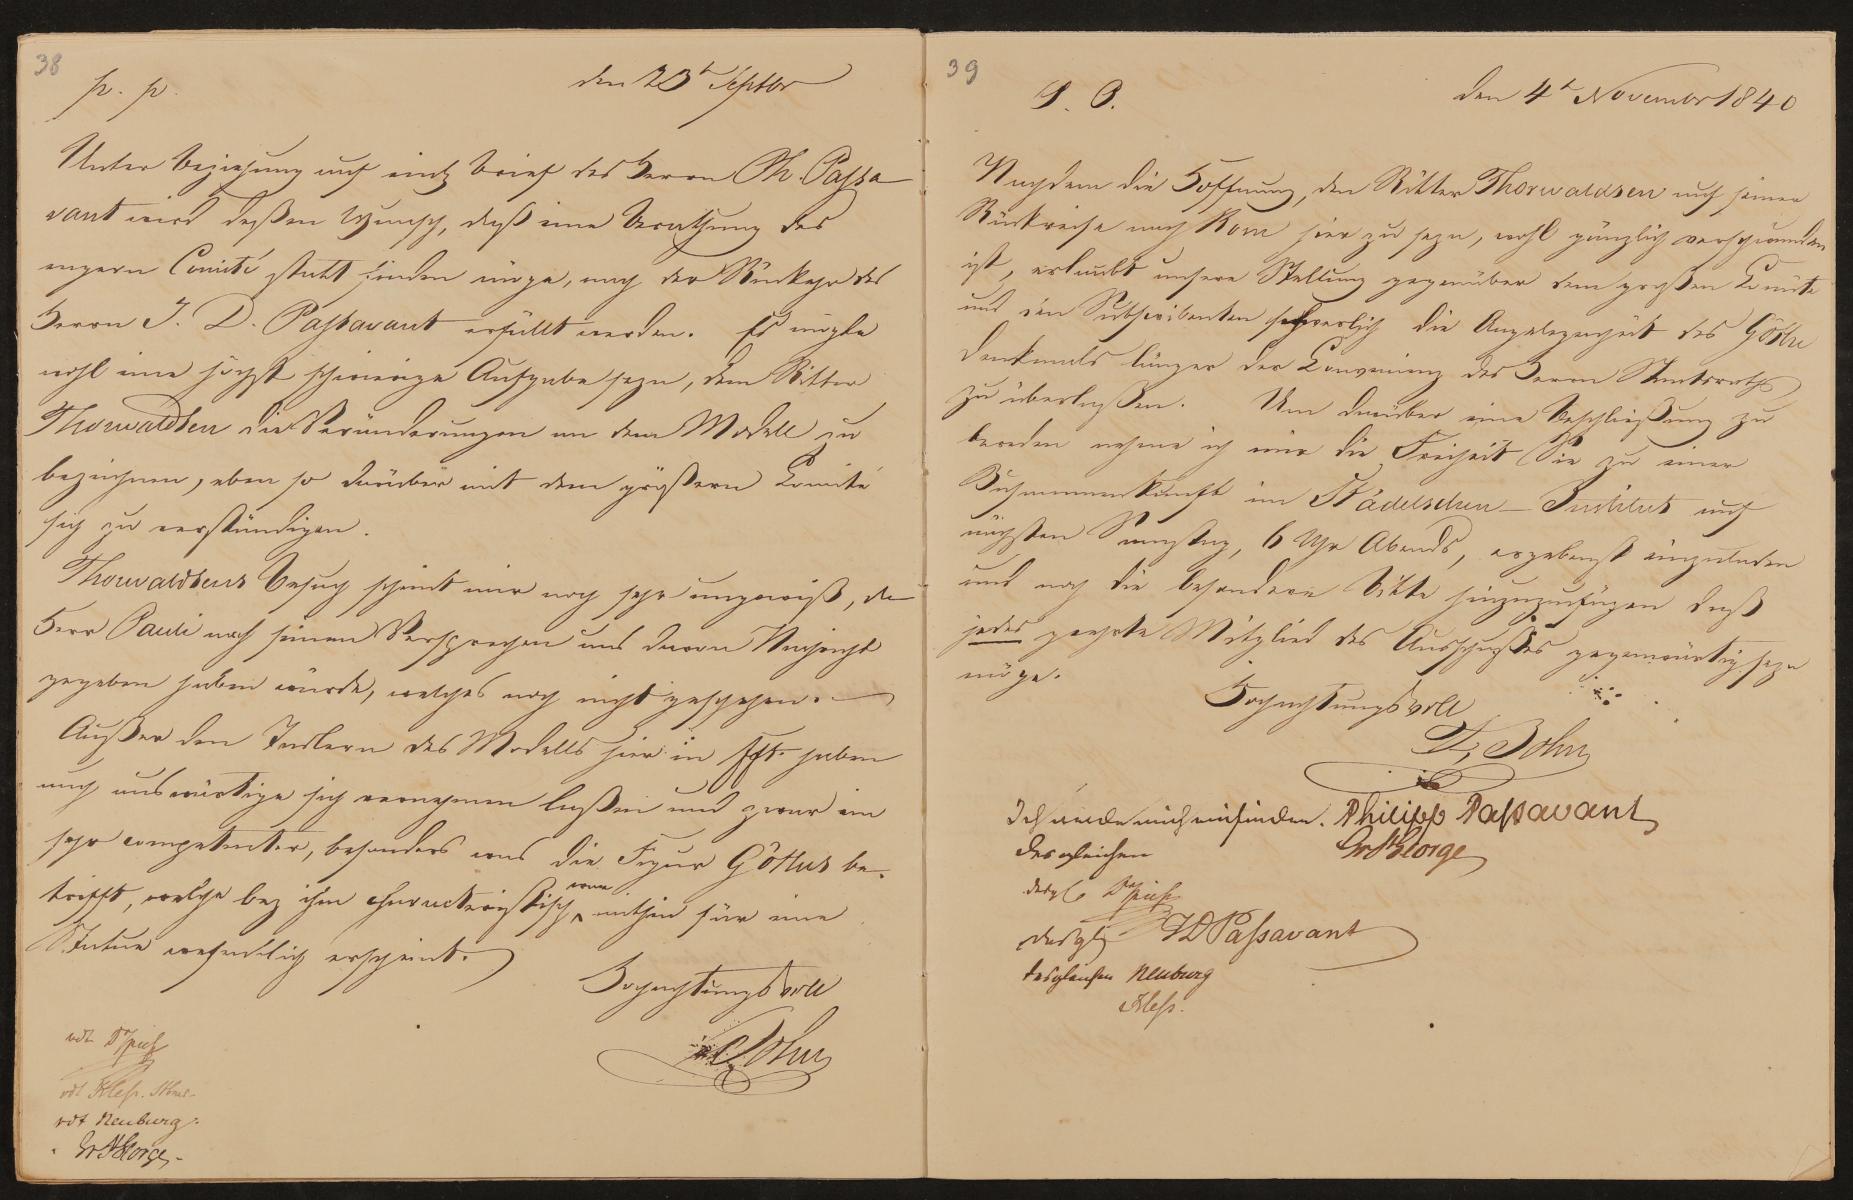 38
p. p.
den 23t Septbr
Unter Beziehung auf einen Brief des Herrn Ph. Passa
vant wird dessen Wunsch, daß eine Berathung des
engern Comité statt finden möge, nach der Rückkehr des
Herrn J. D. Passavant erfüllt werden. Es möchte
wohl eine höchst schwierige Aufgabe seyn, dem Ritter
Thorwaldsen die Veränderungen an dem Modell zu
bezeichnen, eben so darüber mit dem größern Comité
sich zu verständigen.
Thorwaldsens Besuch scheint mir noch sehr ungewiß, da
Herr Pauli nach seinem Versprechen uns davon Nachricht
gegeben haben würde, welches noch nicht geschehen. —
Außer den Tadlern des Modells hier in Fft. haben
auch auswärtige sich vernehmen laßen und zwar ein
sehr competenter, besonders was die Figur Göthes be-
trifft, welche bey ihm characteristisch war mithin für eine
Statue wesentlich erscheint.
Hochachtungsvoll
vdt Dr Spieß
vdt Kleß.
vdt Neuburg.
Gr St George
39
P. P.
den 4t November 1840
Nachdem die Hoffnung, den Ritter Thorwaldsen auf seiner
Rückreise nach Rom hier zu sehn, wohl gänzlich verschwunden
ist, erlaubt unsere Stellung gegenüber dem großen Comité
und den Subscribenten schwerlich die Angelegenheit des Göthe
denkmals länger der Convenienz des Herrn Staatsraths
zu überlaßen. Um darüber eine Beschließung zu
bereden nehme ich mir die Freiheit Sie zu einer
Zusammenkunft im Städelschen – Institut auf
nächsten Samstag, 6 Uhr Abends, ergebenst einzuladen
und noch die besondere Bitte hinzuzufügen daß
jedes geehrte Mitglied des Ausschußes gegenwärtig seyn
möge.
Hochachtungsvoll
Ich werde mich einfinden. Philipp Passavant
desgleichen Gr St George
desgl Dr Spieß
desgl J D Passavant
desgleichen Neuburg
Kleß.